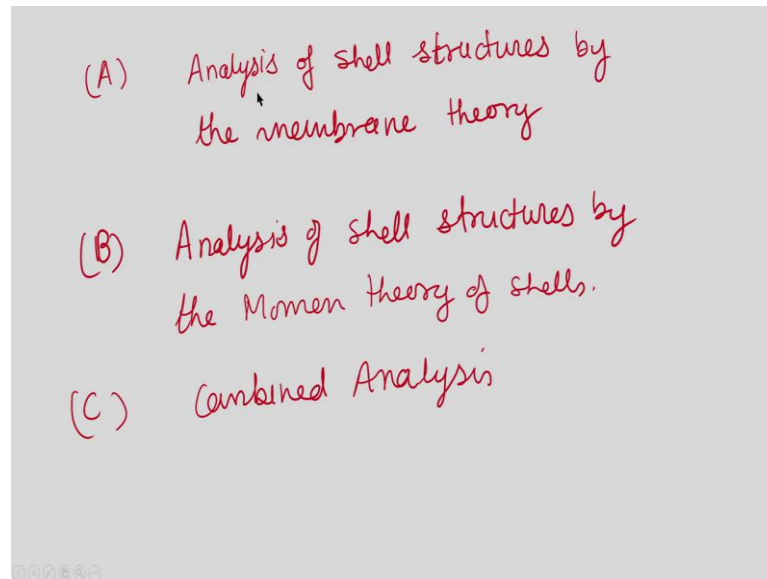 (A) Analysis of shell structures by
the membrane theory
(B) Analysis of shell structures by
the Momen theory of shells.
(C) Combined Analysis